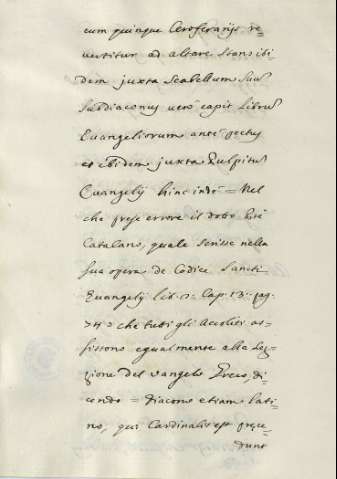 cum quinque Ceroferarijs re-
vertitur ad altare stans ibi
dem juxta scabellum suum
Subdiaconus vero capit librum
Evangeliorum ante pectus
et ibidem juxta Pulpitum
Evangelij hinc inde = Nel
che prese errore il dotto
Catalano, quale scrisse nella
sua opera de Codice Sancti
Evangelij lib. Cap. 13. pag.
che tutti gli Accoliti as-
sistono egualmente alla Lez-
zione del vangelo Greco, di-
cendo = Diacono etiam lati-
no, qui Cardinalis est præce-
dunt